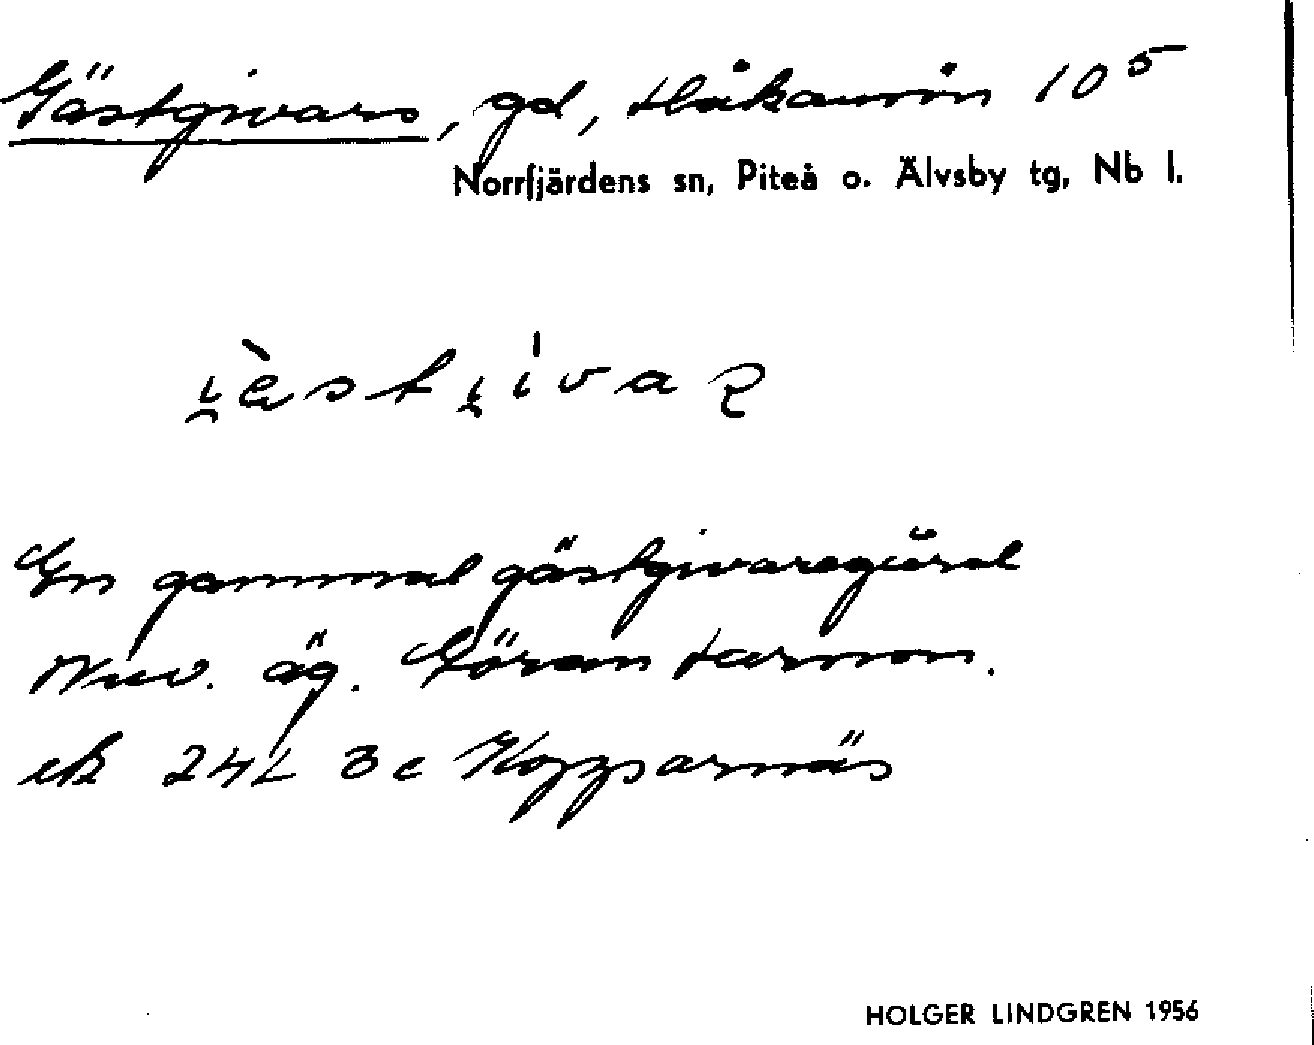 Gästgivars, gd, Håkansön 10⁵
Norrfjärdens sn, Piteå o. Älvsby tg, Nb l.
En gammal gästgivaregård
Nuv. äg. Göran
ek 24L 3c Kopparnäs
HOLGER LINDGREN 1956